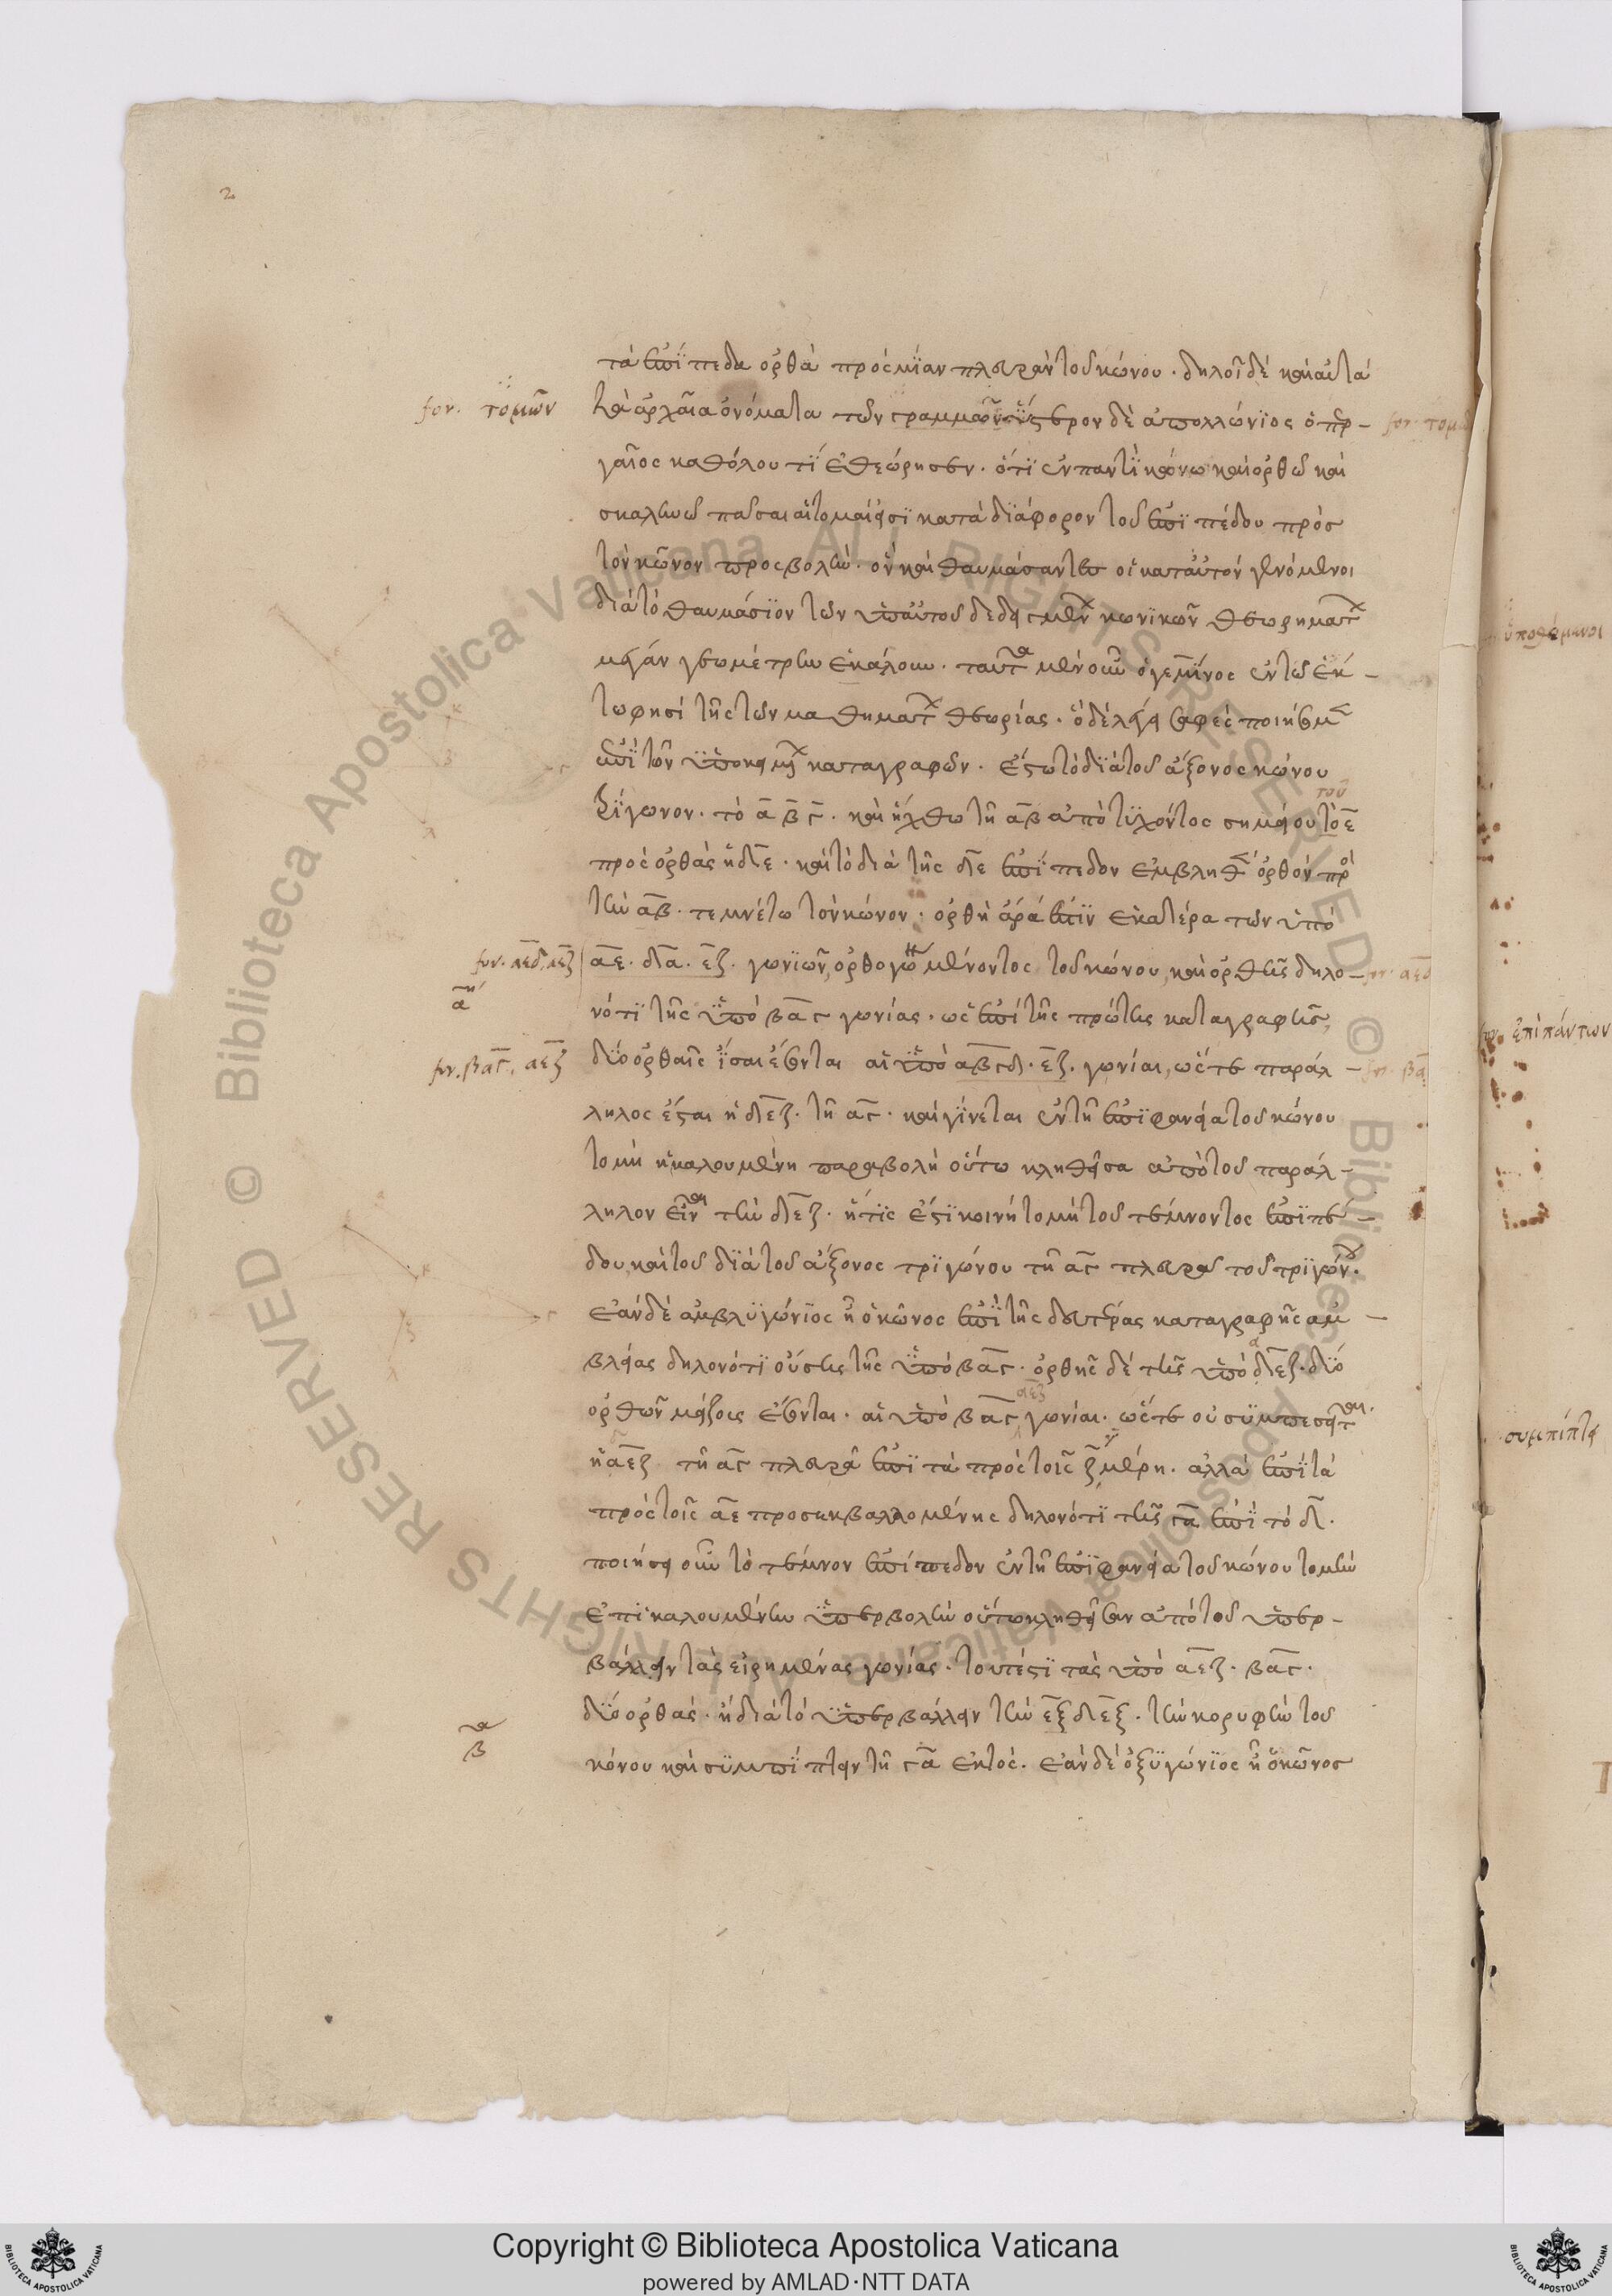 2
τὰ ἐπίπεδα ὀρθὰ πρὸς μίαν πλευρὰν τοῦ κώνου · δηλοῖ δὲ καὶ αὐτὰ
for. τομῶν
τὰ ἀρχαῖα ὀνόματα τῶν γραμμῶν ὕστερον δὲ ἀπολλώνιος ὁ περ–
γαῖος καθόλου τι ἐθεώρησεν · ὅτι ἐν παντὶ κώνω καὶ ὀρθῶ καὶ
σκαληνῶ πᾶσαι αἱ τομαί εἰσι κατὰ διάφορον τοῦ ἐπιπέδου πρὸς
τὸν κῶνον προσβολήν · ὃν καὶ θαυμάσαντες οἱ κατ αὐτὸν γενόμενοι
διὰ τὸ θαυμάσιον τῶν ὑπ αὐτοῦ δεδειγμεν κωνικῶν θεωρηματ
μέγαν γεωμέτρην ἐκάλουν · ταῦτα μὲν οὖν ὁ γεμῖνος ἐν τῶ ἕκ–
τω φησὶ τῆς τῶν μαθηματ θεωρίας · ὃ δὲ λέγει σαφὲς ποιήσομ
ἐπὶ τῶν ὑποκειμ καταγραφῶν · ἔστω τὸ διὰ τοῦ ἄξονος κώνου
του
τρίγωνον · τὸ α β γ · καὶ ἤχθω τῆ αβ ἀπὸ τυχόντος σημείου τὸ ε
πρὸς ὀρθὰς ἡ δε · καὶ τὸ διὰ τῆς δε ἐπίπεδον ἐμβληθ ὀρθὸν πρ
τὴν αβ · τεμνέτω τὸν κώνον · ὀρθὴ ἄρα ἐστὶν ἑκατέρα τῶν ὑπὸ
for. αεδ, αεζ
αε · δα · εζ · γωνιῶν, ὀρθογω μένοντος τοῦ κώνου, καὶ ὀρθῆς δηλο–
α
νότι τῆς ὑπὸ βαγ γωνίας · ὡς ἐπὶ τῆς πρώτης καταγραφῆς,
for. βαγ, αεζ
δύο ὀρθαῖς ἴσαι ἔσονται αἱ ὑπὸ αβγδ · εζ · γωνίαι, ὥστε παράλ–
ληλος ἔσται ἡ δεζ · τῆ αγ · καὶ γίνεται ἐν τῆ ἐπιφανεία τοῦ κώνου
τομὴ ἡ καλουμένη παραβολὴ οὕτω κληθεῖσα ἀπὸ τοῦ παράλ–
ληλον εἶναι τὴν δεζ · ἥτις ἐστὶ κοινὴ τομὴ τοῦ τέμνοντος ἐπιπέ–
δου καὶ τοῦ διὰ τοῦ ἄξονος τριγώνου τῆ αγ πλευρᾶ τοῦ τριγών ·
ἐὰν δὲ ἀμβλυγώνιος ἦ ὁ κῶνος ἐπὶ τῆς δευτέρας καταγραφῆς ἀμ–
βλείας δηλονότι οὔσης τῆς ὑπὸ βαγ · ὀρθῆς δὲ τῆς ὑπὸ δεζ · δύο
αεζ
ὀρθῶν μείζους ἔσονται · αἱ ὑπὸ βαγ γωνίαι · ὥστε οὐ συμπεσεῖτ
ἡ αεζ τῆ αγ πλευρᾶ ἐπὶ τὰ πρὸς τοῖς ζ μέρη · ἀλλὰ ἐπὶ τὰ
πρὸς τοῖς αε προσεκβαλλομένης δηλονότι τῆς γα ἐπὶ τὸ δ ·
ποιήσει οὖν τὸ τέμνον ἐπίπεδον ἐν τῆ ἐπιφανεία τοῦ κώνου τομὴν
ἐπικαλουμένην ὑπερβολὴν οὕτω κληθεῖσαν ἀπὸ τοῦ ὑπερ–
βάλλειν τὰς εἰρημένας γωνίας · τουτέστι τὰς ὑπὸ αεζ · βαγ ·
δύο ὀρθάς · ἢ διὰ τὸ ὑπερβάλλειν τὴν εξ δεξ · τὴν κορυφὴν τοῦ
β
κόνου καὶ συμπίπτειν τῆ γα ἐκτός · ἐὰν δὲ ὀξυγώνιος ἦ ὁ κῶνος
ἐπὶ πάντων
συμπίπτει
Copyright © Biblioteca Apostolica Vaticana
powered by AMLAD·NTT DATA